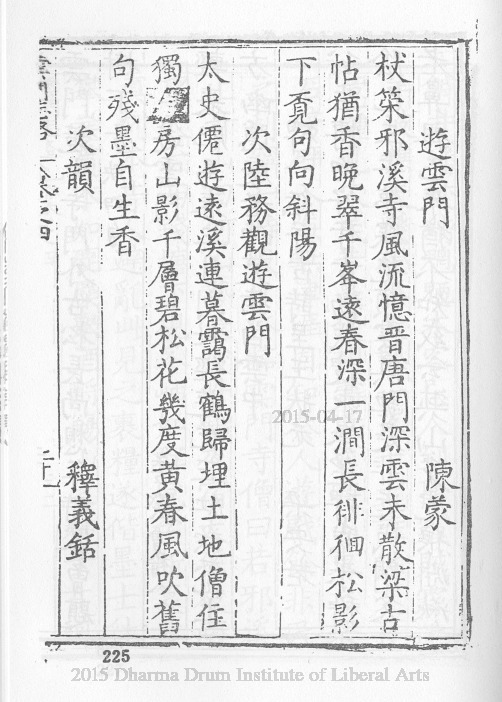 遊雲門 陳蒙
杖策邪溪寺風流憶晋唐門深雲未散梁古
帖猶香晚翠千峯遠春深一澗長徘徊松影
下覔句向斜陽
次陸務觀遊雲門
太史僊遊遠溪連暮靄長鶴歸埋土地僧住
獨 房山影千層碧松花幾度黄春風吹舊
句殘墨自生香
次韻 釋義銛
225
2015-04-17
2015 Dharma Drum Institute of Liberal Arts